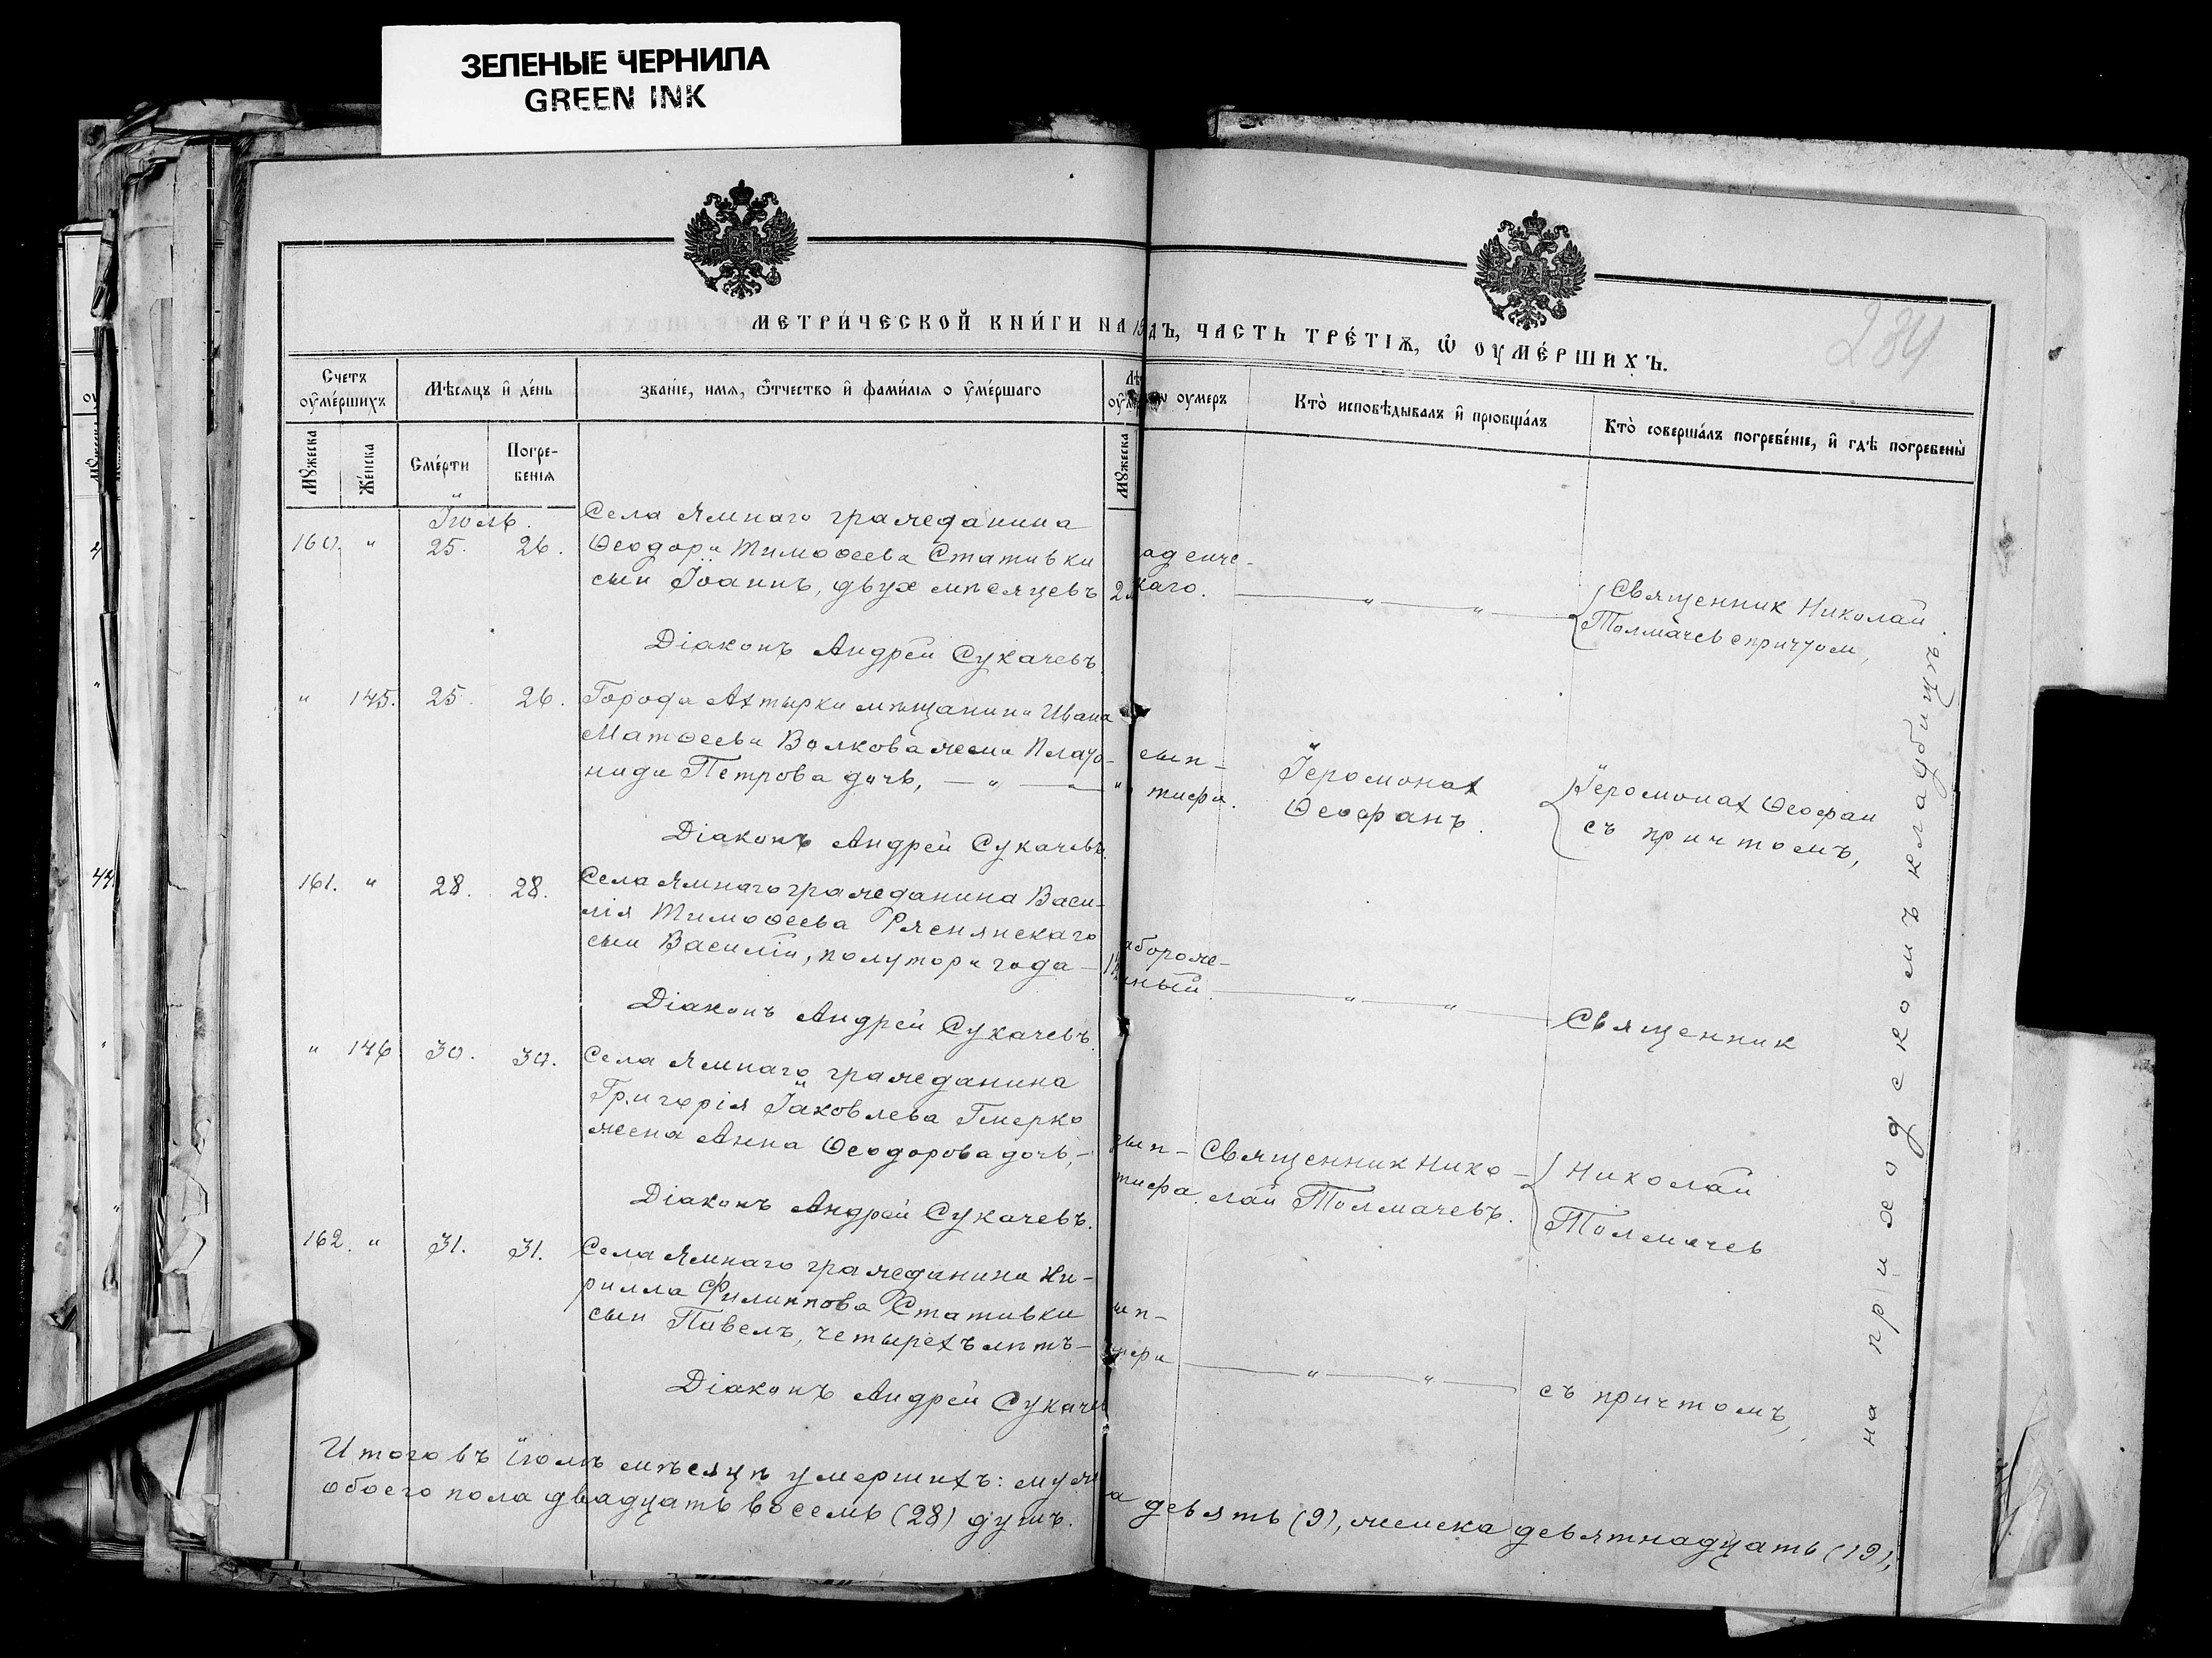 ЗЕЛЕНЫЕ ЧЕРНИЛА
GREEN INK
МЕТРИ́ЧЕСКОЙ КНИ́ГИ НА 19
ДЪ, ЧАСТЬ ТРЕ́ТІѦ, Ѡ҆ ОУМЕ́РШИХЪ.
234
Счетъ оу҆ме́ршихъ
Мѣсѧцъ и҆ де́нь
Званіе, имѧ, ѻ҆тчество и҆ фами́лїѧ о у҆ме́ршаго
оумеръ
Кто̀ исповѣдывалъ и҆ прїобща́лъ
Кто̀ соверша́лъ погребе́нїе, и҆ гдѣ погребены̀
Мꙋжеска
Же́нска
Сме́рти
Погре-
бенїѧ
Мꙋжеска
Іюль.
Села Ямнаго гражданина
160. " 25. 26. Ѳеодора Тимоѳеева Стативки
сын Іоаннъ, двух мѣсяцевъ 2
аденче-
скаго.
Священник Николай
Толмачев с причтом,
Діаконъ Андрей Сукачевъ
" 145. 25. 26. Города Ахтырки мѣщанина Ивана
Матѳеева Волкова жена Плато-
нида Петрова дочь, — " — "
сып-
тифа.
Іеромонах
Ѳеофанъ.
Іеромонах Ѳеофан
съ причтомъ,
Діаконъ Андрей Сукачевъ.
161. " 28. 28. Села Ямнаго гражданина Васи-
лія Тимоѳеева Ряснянскаго
сын Василій, полутора года — 1½
аброже-
нный
— " — " —
Священник
Діаконъ Андрей Сукачевъ.
" 146 30. 30. Села Ямнаго гражданина
Григорія Іаковлева Гмерко
жена Анна Ѳеодорова дочь, —
сып-
тифа.
Священник Нико-
лай Толмачевъ.
Николай
Толмачев
Діаконъ Андрей Сукачевъ.
162. " 31. 31. Села Ямнаго гражданина Ки-
рилла Филиппова Стативки
сын Павелъ, четырехъ лѣтъ —
ып-
тифа
— " — " —
съ причтомъ,
Діаконъ Андрей Сукачев
на приходскомъ кладбищѣ.
Итого въ іюлѣ мѣсяцѣ умершихъ: муж
а девять (9), женска девятнадцать (19),
обоего пола двадцать восемь (28) душъ.